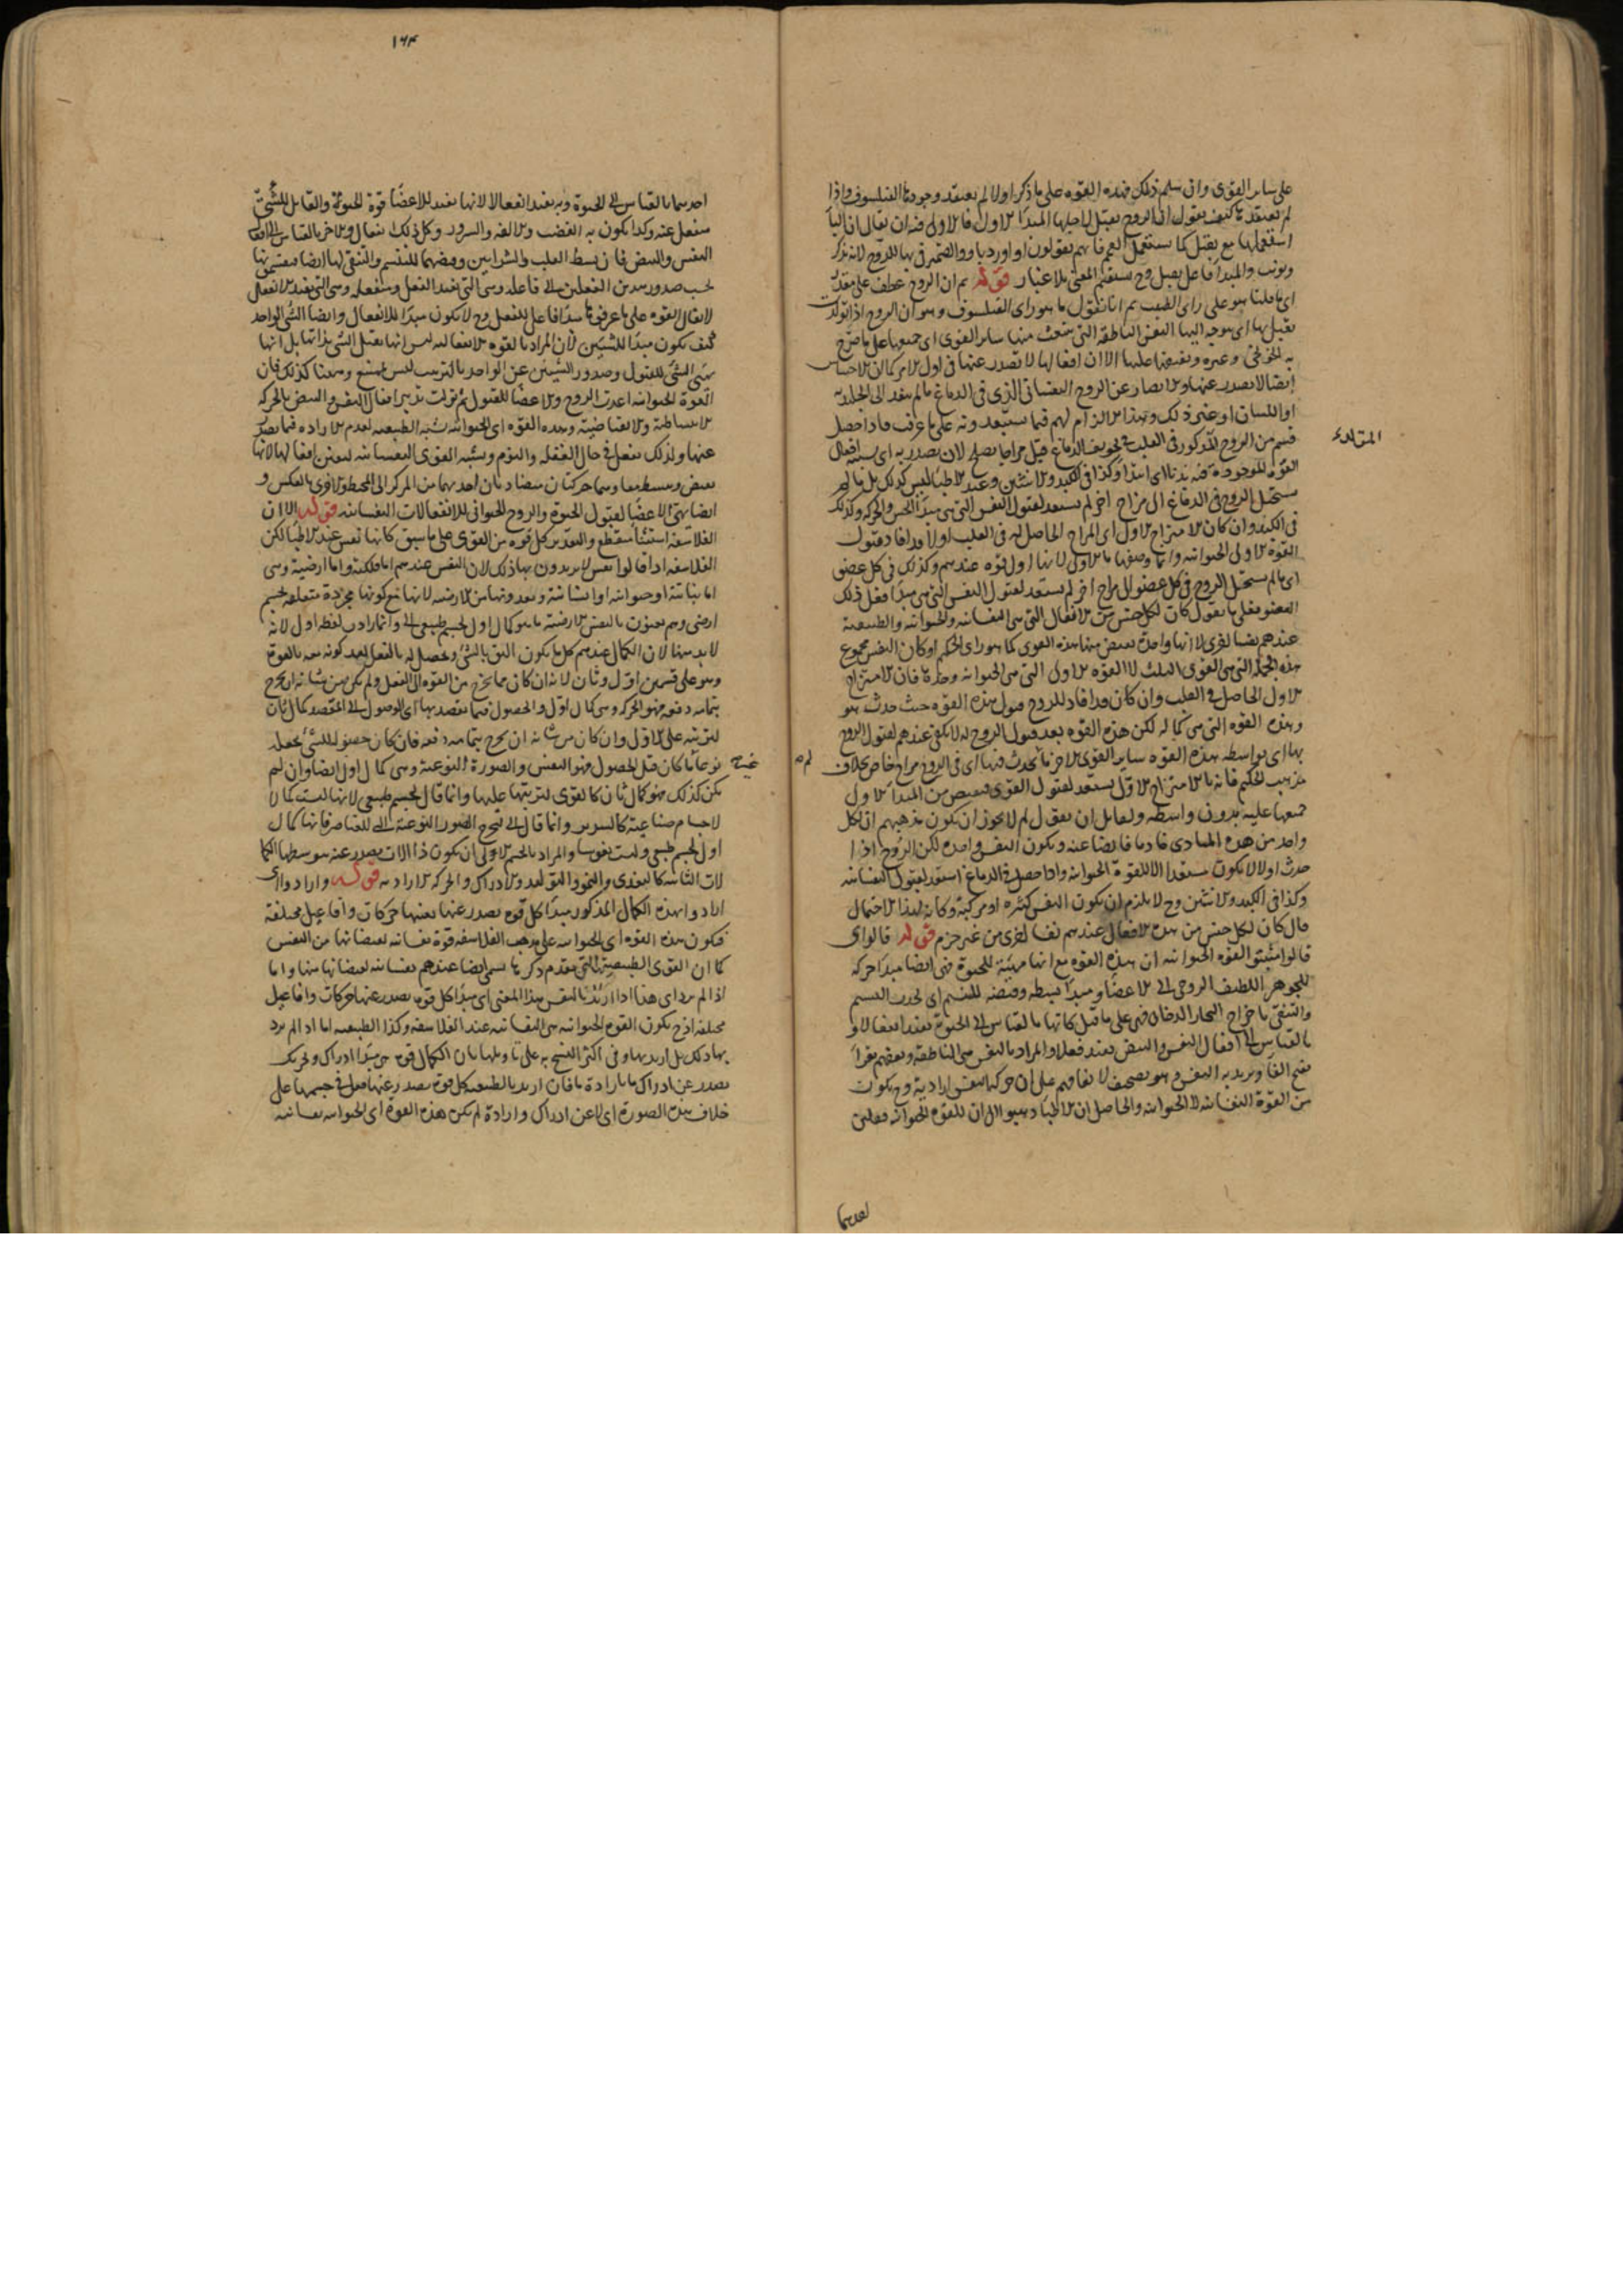 على ساير القوى وان سلم ذلك فهذه القوه على ما ذكر اولا لم يعتقد وجودها الفيلسوف واذا
لم يعتقدها كيف يقول ان الروح يقبل لاجلها المبدا الاول فالاولى فيه ان يقال ان البا
استعمالها مع يقبل كما يستعمل اللام فانهم يقولون او اورد بها و والضمير في بها للروح لانه يذكر
ويونث والمبدا فاعل يقبل وح يستقيم المعنى بلا غبار قوله ثم ان الروح عطف على مقدر
اى ما قلنا هو على راى الطبيب ثم انا نقول ما هو راى الفيلسوف وهو ان الروح اذا تولدت
يقبل بها اى بتوجه اليها النفس الناطقة التى ينبعث منها ساير القوى اى جميعها على ما صرح
به الخونجى وغيره ويفيضها عليها الا ان افعالها لا تصدر عنها فى اول الامر كما ان الاحساس
ايضا لا يصدر عنها والابصار عن الروح النفسانى الذى فى الدماغ ما لم ينفذ الى الجليديه
او اللسان او غير ذلك وهذا الالزام لهم فيما يستبعدونه على ما عرفت فاذا حصل
قسم من الروح المذكور فى القلب فى تجويف الدماغ قبل مزاجا يصلح لان يصدر به اى بسببه افعال
القوة الموجودة فيه بدنا اى ابتدا وكذا فى الكبد والانثيين وعند الاطبا ليس كذلك بل ما لم
يستحل الروح فى الدماغ الى مزاج اخر لم يستعد لقبول النفس التى هى مبدا الحس والحركه وكذلك
فى الكبد وان كان الامتزاج الاول اى المزاج الحاصل له فى القلب اولا قد افاد قبول
القوة الاولى الحيوانيه وانما وصفها بالاولى لانها اول قوه عندهم وكذلك فى كل عضو
اى ما لم يستحل الروح فى كل عضو الى مزاج اخر لم يستعد لقبول النفس التى هى مبدا فعل ذلك
العضو فعلى ما نقول كان لكل جنس من الافعال التى هى النفسانيه والحيوانيه والطبيعية
عندهم نفسا اخرى لا انها واحدة يفيض منها هذه القوى كما هو راى الحكيم او كان النفس مجموع
هذه الجملة التى هى القوى الثلث لا القوه الاولى التى هى الحيوانيه وحدها فان الامتزاج
الاول الحاصل فى القلب وان كان قد افاد للروح قبول هذه القوه حيث حدث هو
وهذه القوه التى هى كماله لكن هذه القوه بعد قبول الروح له لا تكفى عندهم لقبول الروح
بها اى بواسطه هذه القوه ساير القوى الاخر ما لم يحدث فيها اى فى الروح مزاج خاص بخلاف
مذهب الحكيم فانه بالامتزاج الاول يستعد لقبول القوى فيفيض من المبدا الاول
جميعها عليه بدون واسطه ولقايل ان يقول لم لا يجوز ان يكون مذهبهم ان لكل
واحد من هذه المبادى فايضا عنه ويكون النفس واحده لكن الروح اذا
حدث اولا لا يكون مستعدا الا للقوة الحيوانيه واذا حصل فى الدماغ استعد لقبول النفسانيه
وكذا فى الكبد والانثيين وح لا يلزم ان يكون النفس كثيره او مركبة وكانه لهذا الاحتمال
قال كان لكل جنس من هذه الافعال عندهم نفسا اخرى من غير جزم قوله قالوا اى
قالوا مثبتو القوه الحيوانيه ان هذه القوه مع انها مهيئة للحيوة فهى ايضا مبدا حركه
للجوهر اللطيف الروحى الى الاعضا ومبدا بسطه وقبضه للنسيم اى لجذب النسيم
والتنقى باخراج البخار الدخانى فهى على ما قيل كانها بالقياس الى الحيوة تفيد انفعالا و
بالقياس الى افعال النفس والنبض تفيد فعلا والمراد بالنفس هى الناطقة وبعضهم يقرا
بفتح الفا ويريد به التنفس وهو تصحيف لاتفاقهم على ان حركه التنفس ارادية وح يكون
من القوة النفسانيه لا الحيوانيه والحاصل ان الاطبا ذهبوا الى ان للقوه الحيوانيه فعلين
المتلاىء
احديهما
١٦٤
احديهما بالقياس الى الحيوة وبه يفيد انفعالا لانها تفيد للاعضا قوة الحيوة والقابل للشى
منفعل عنه وكذا يكون به الغضب والانفه والسرور وكل ذلك انفعال والاخر بالقياس الى افعال
النفس والنبض فان بسط القلب والشرايين وقبضهما للتنسم والتنقى لها ايضا فيقسمونها
بحسب صدور هذين الفعلين الى فاعله وهى التى تفيد الفعل ومنفعله وهى التى تفيد الانفعال
لا يقال القوه على ما عرفوها مبدا فاعلى للفعل وح لا يكون مبدا للانفعال وايضا الشى الواحد
كيف يكون مبدا للشيئين لان المراد بالقوه الانفعاليه ليس انها يقبل الشى بذاتها بل انها
يهيى الشى للقبول وصدور الشيئين عن الواحد بالترتيب ليس بممتنع وههنا كذلك فان
القوة الحيوانيه اعدت الروح والاعضا للقبول ثم تولت تدبير افعال النفس والنبض بالحركه
الانبساطية والانقباضية وهذه القوه اى الحيوانيه تشبه الطبيعيه لعدم الاراده فيما يصدر
عنها ولذلك تفعل فى حال الغفله والنوم وتشبه القوى النفسانيه لتعين افعالها لانها
تقبض وتبسط معا وهما حركتان متضادتان احديهما من المركز الى المحيط والاخرى بالعكس و
ايضا يهيى الاعضا لقبول الحيوة والروح الحيوانى للانفعالات النفسانيه قوله الا ان
الفلاسفه استثنا منقطع والتقدير كل قوه من القوى على ما سبق كانها نفس عند الاطبا لكن
الفلاسفه اذا قالوا نفس لا يريدون بها ذلك لان النفس عندهم اما فلكية واما ارضية وهى
اما نباتية او حيوانيه او انسانية ويعدونها من الارضيه لانها مع كونها مجردة متعلقه بجسم
ارضى وهم يعنون بالنفس الارضية ما هو كمال اول لجسم طبيعى الى وانما اراد لفظه اول لانه
لا بد منها لان الكمال عندهم كل ما يكون اللايق بالشى ويحصل له بالفعل بعد كونه معه بالقوة
وهو على قسمين اول وثان لانه ان كان مما يخرج من القوه الى الفعل ولم يكن من شانه ان يخرج
بتمامه دفعه فهو الحركه وهى كمال اول والحصول فيما يقصد بها اى الوصول الى المقصد كمال ثان
لترتبه على الاول وان كان من شانه ان يخرج بتمامه دفعه فان كان حصوله للشى يجعله
نوعا ما كان قبل الحصول فهو النفس والصورة النوعية وهى كمال اول ايضا وان لم
يكن كذلك فهو كمال ثان كالقوى لترتبها عليها وانما قال لجسم طبيعى لانها ليست كمالا
لاجسام صناعية كالسرير وانما قال الى ليخرج الصور النوعية التى للعناصر فانها كمال
اول لجسم طبيعى وليست نفوسا والمراد بالجسم الالى ان يكون ذا الات يصدر عنه بتوسطها الكما
لات الثانيه كالتغذى والنمو والتوليد والادراك والحركه الاراديه قوله وارادوا اى
ارادوا بهذه الكمال المذكور مبدا كل قوه تصدر عنها بعينها حركات وافاعيل مختلفة
فيكون هذه القوه اى الحيوانيه على مذهب الفلاسفه قوة نفسانيه لفيضانها من النفس
كما ان القوى الطبيعية التى تقدم ذكرها تسمى ايضا عندهم نفسانيه لفيضانها منها واما
اذا لم يرد اى هذا اذا اريد بالنفس هذا المعنى اى مبدا كل قوه يصدر عنها حركات وافاعيل
مختلفه اذ ح يكون القوه الحيوانيه هى النفسانيه عند الفلاسفه وكذا الطبيعيه اما اذا لم يرد
بها ذلك بل اريد بها وفى اكثر النسخ به على تاويلها بان الكمال قوه هى مبدا ادراك وتحريك
يصدر عن ادراك ما بارادة ما فان اريد بالطبيعيه كل قوه يصدر عنها فعل فى جسمها على
خلاف هذه الصورة اى لا عن ادراك وارادة لم يكن هذه القوة اى الحيوانيه نفسانيه